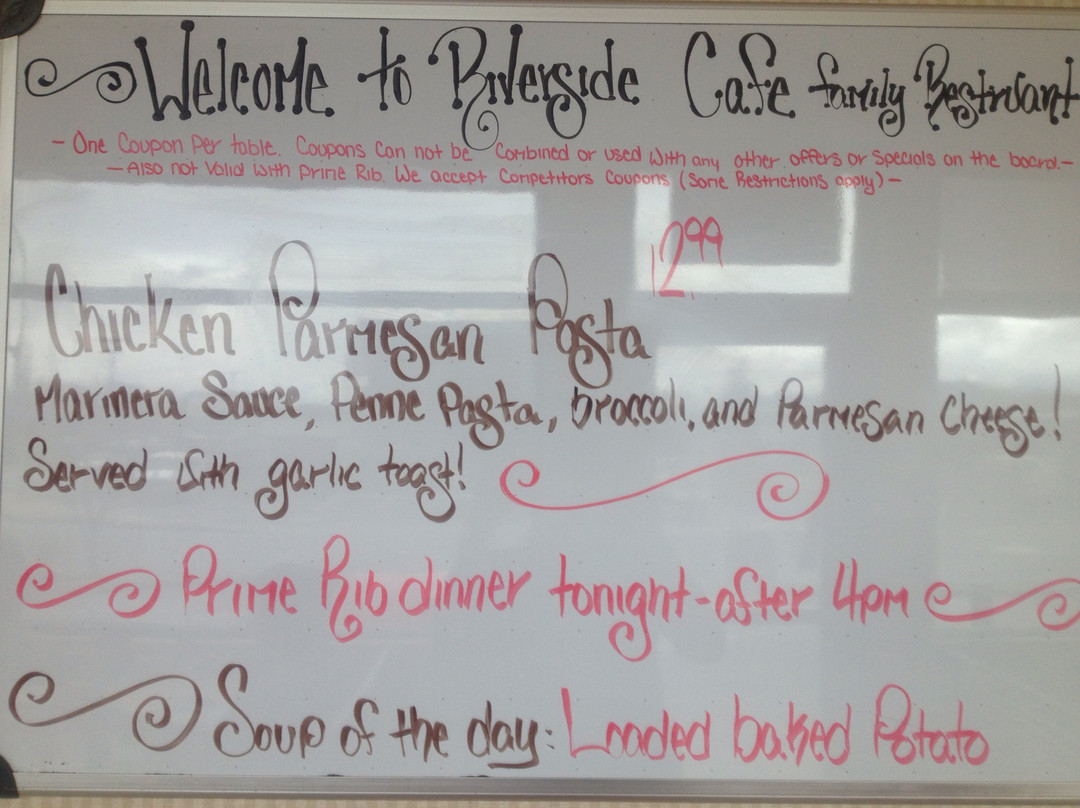 Welcome to Riverside Cafe family Restruant
- One Coupon Per table. Coupons Can not be Combined or used With any other offers or Specials on the board.-
- Also not Valid with prime Rib. We accept Competitors Coupons (Some Restrictions apply) -
12.99
Chicken Parmesan Pasta
Marinera Sauce, Penne Pasta, broccoli, and Parmesan Cheese!
Served with garlic toast!
Prime Rib dinner tonight - after 4pm
Soup of the day: Loaded baked Potato